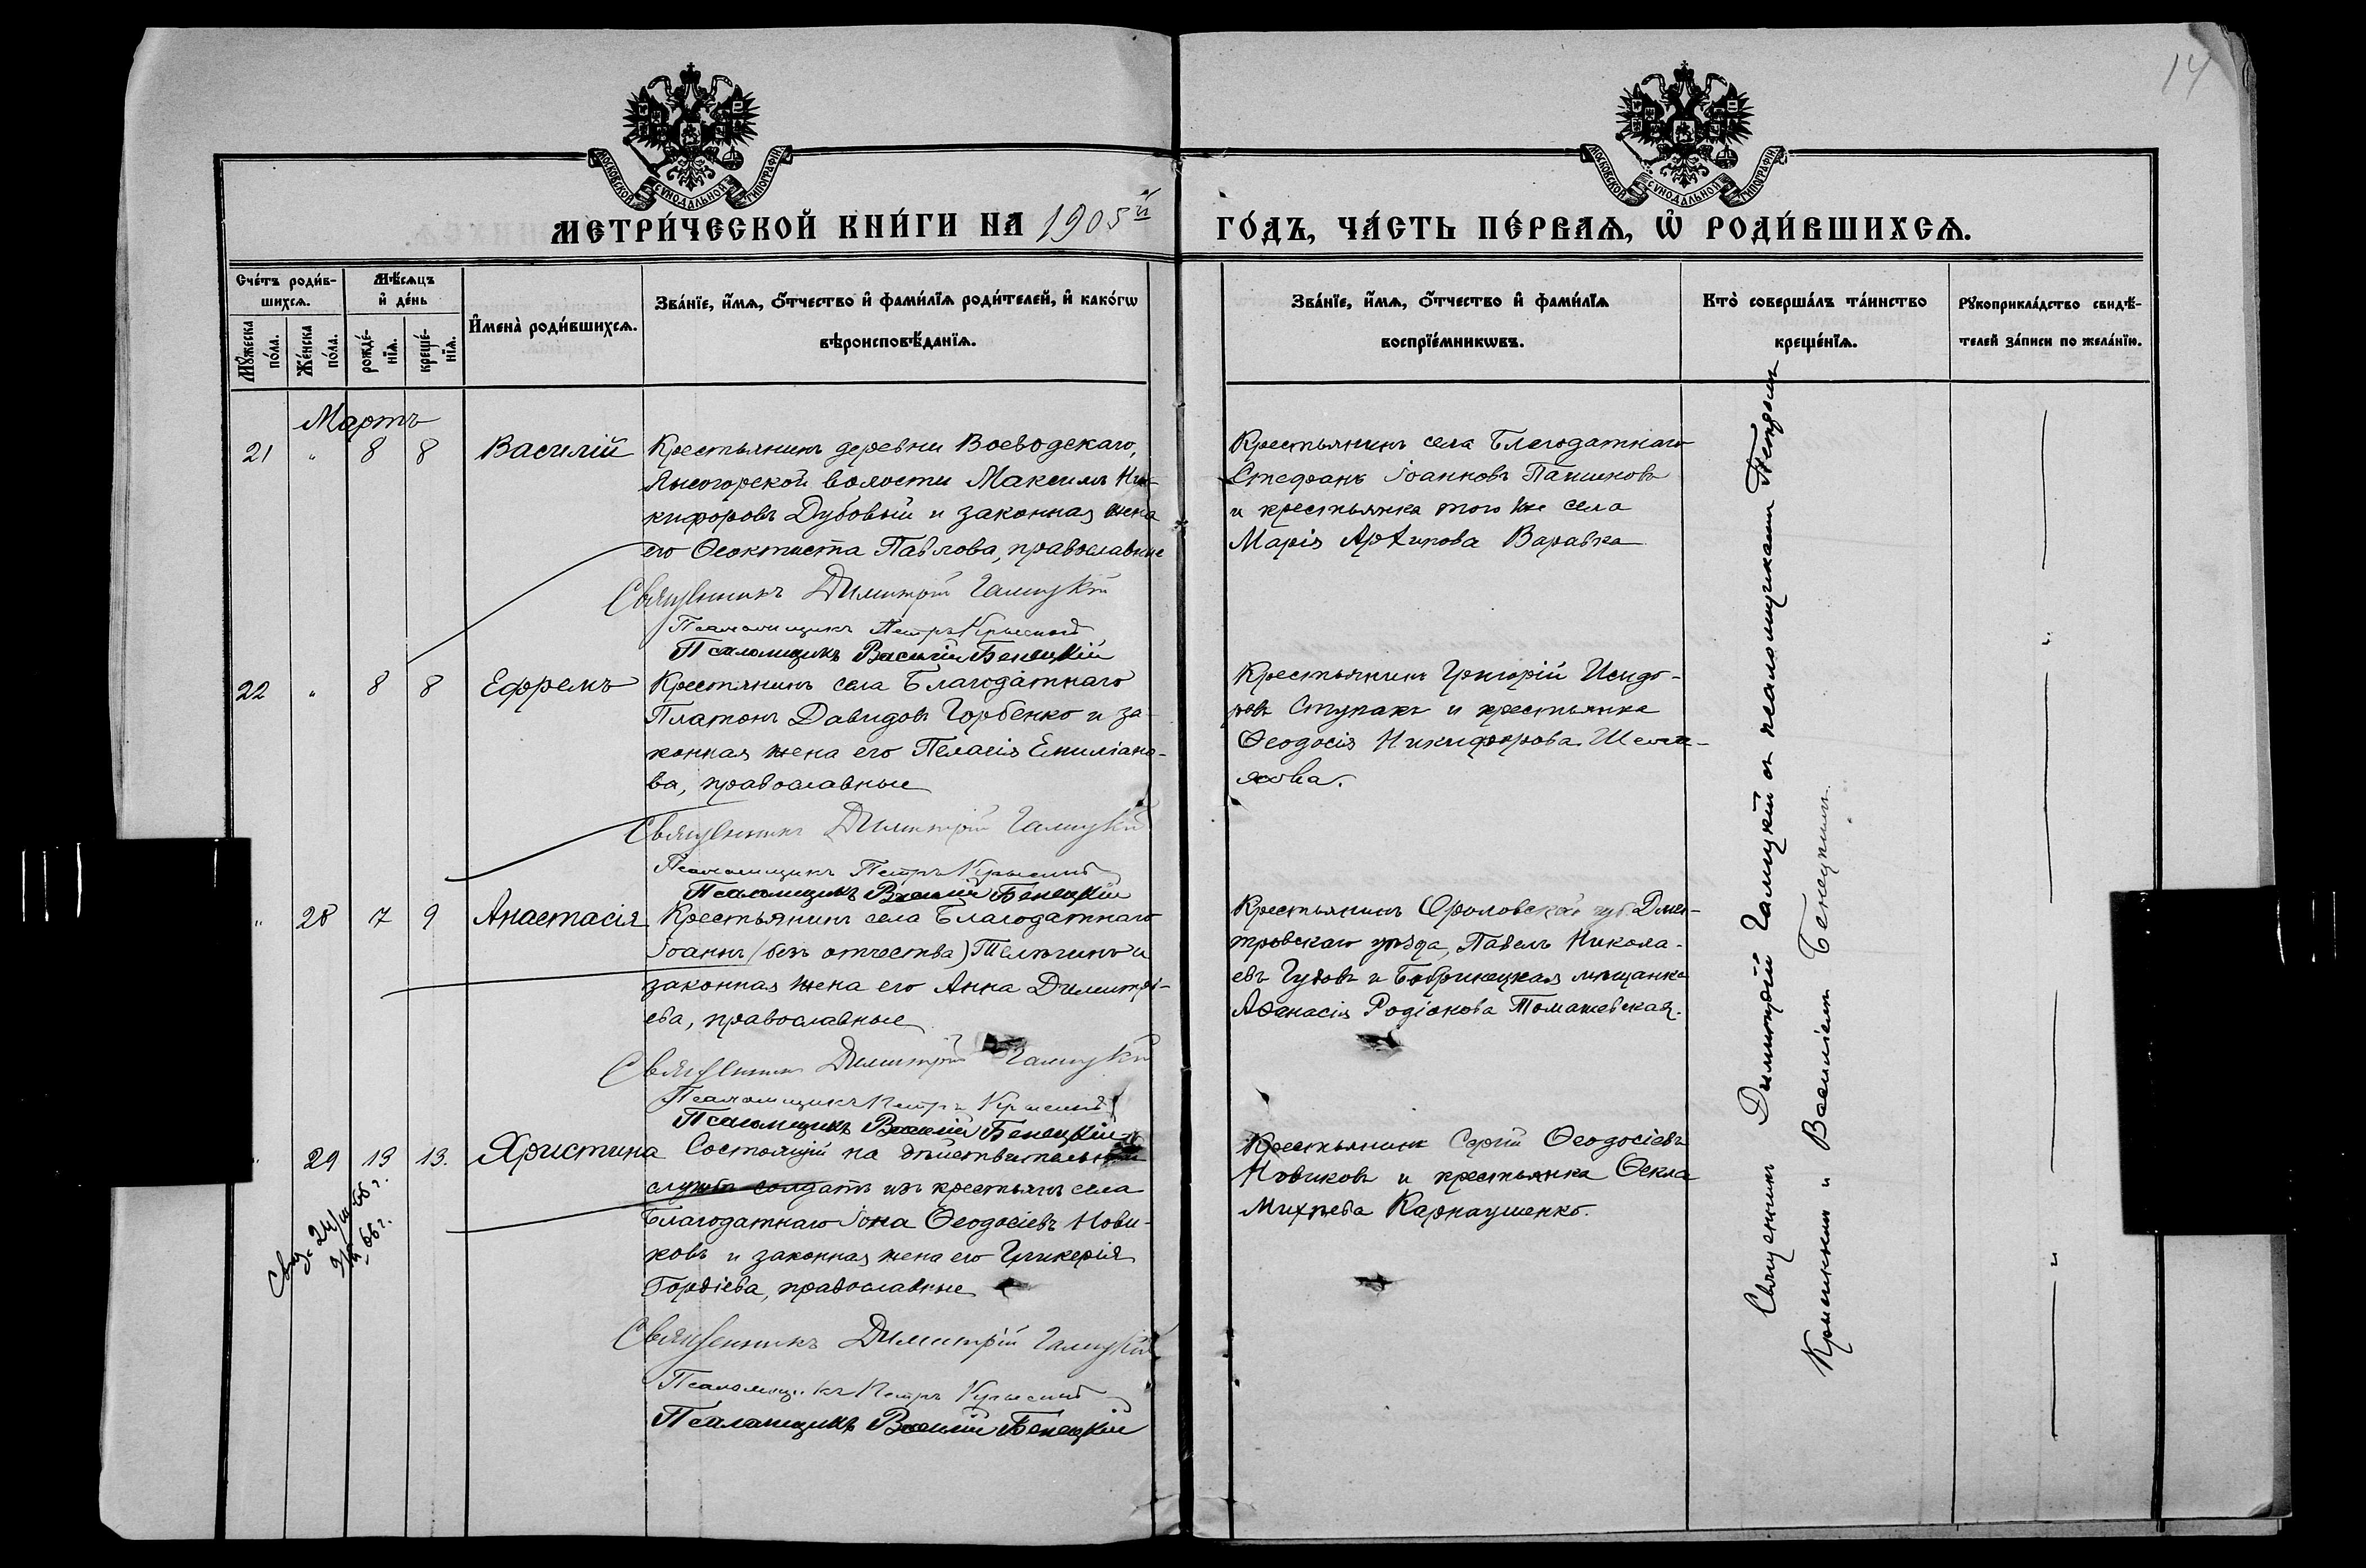 14
МОСКОВСКОЙ СѴНОДАЛЬНОЙ ТИПОГРАФІИ
МОСКОВСКОЙ СѴНОДАЛЬНОЙ ТИПОГРАФІИ
МЕТРИ́ЧЕСКОЙ КНИ́ГИ НА 1905й
ГО́ДЪ, ЧА́СТЬ ПЕ́РВАѦ, Ѡ҆ РОДИ́ВШИХСѦ.
Сче́тъ роди́в-
шихсѧ.
Мꙋ́жеска по́ла.
Же́нска по́ла.
Мѣ́сѧцъ
и҆ де́нь
рожде́-
нїѧ.
креще́-
нїѧ.
И҆мена̀ роди́вшихсѧ.
Зва́нїе, и҆́мѧ, ѻ҆́тчество и҆ фами́лїѧ роди́телей, и҆ како́гѡ
вѣроисповѣ́данїѧ.
Зва́нїе, и҆́мѧ, ѻ҆́тчество и҆ фами́лїѧ
воспрїе́мникѡвъ.
Кто̀ соверша́лъ та́инство
креще́нїѧ.
Рꙋкоприкла́дство свидѣ́-
телей за́писи по жела́нїю.
Мартъ
21 " 8 8 Василій
Крестьянинъ деревни Воеводскаго,
Лысогорской волости Максимъ Ни-
кифоровъ Дубовый и законная жена
его Ѳеоктиста Павлова, православные
Священникъ Димитрій Галицкій
Псаломщикъ Петръ
Псаломщикъ Василій Бенецкій
Крестьянинъ села Благодатнаго
Стефанъ Іоанновъ Пашиновъ
и крестьянка того же села
Марія Архипова Варавка
22 " 8 8 Ефремъ
Крестянинъ села Благодатнаго
Платонъ Давидовъ Горбенко и за-
конная жена его Пелагія Емиліано-
ва, православные
Священникъ Димитрій Галицкій
Псаломщикъ Петръ
Псаломщикъ Василій Бенецкій
Крестьянинъ Григорій Исидо-
ровъ Ступакъ и крестьянка
Ѳеодосія Никифорова
" 28 7 9 Анастасія
Крестьянинъ села Благодатнаго
Іоаннъ (безъ отчества) Телѣгинъ и
законная жена его Анна Димитрі-
ева, православные
Священникъ Димитрій Галицкій
Псаломщикъ Петръ
Псаломщикъ Василій Бенецкій
Крестьянинъ губ. Дми-
тровскаго уѣзда, Павелъ Никола-
евъ Гудовъ и Бобринецкая мѣщанка
Аѳанасія Родіонова Томашевская.
" 29 13 13. Христина
Состоящій на дѣйствительной
службѣ солдатъ изъ крестьянъ села
Благодатнаго Іона Ѳеодосіевъ Нови-
ковъ и законная жена его Гликерія
Гордіева, православные
Священникъ Димитрій Галицкій
Псаломщикъ Петръ
Псаломщикъ Василій Бенецкій
Крестьянинъ Сергій Ѳеодосіевъ
Новиковъ и крестьянка Ѳекла
Михѣева Карнаушенко.
Священникъ Димитрій Галицкій съ псаломщиками Петромъ
и Василіемъ Бенецкимъ.